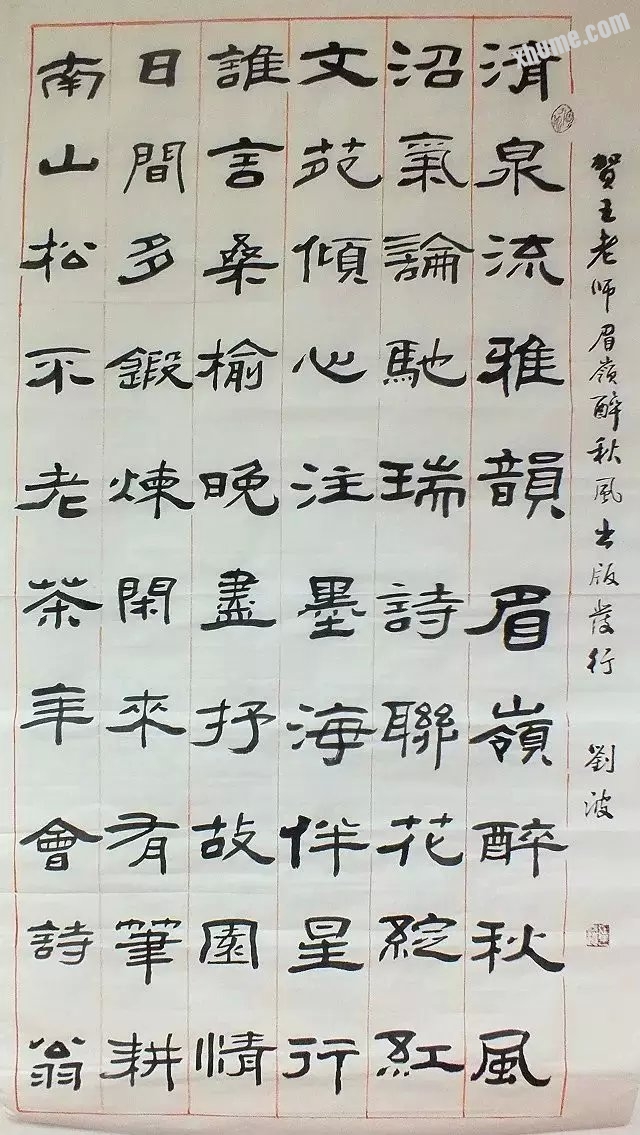 xhome.com
賀王老师眉嶺醉秋風出版發行 劉波
清泉流雅韻眉嶺醉秋風
沼氣論馳瑞詩聯花綻紅
文苑傾心注墨海伴星行
誰言桑榆晚盡抒故園情
日間多鍛煉閑來有筆耕
南山松不老茶年會詩翁